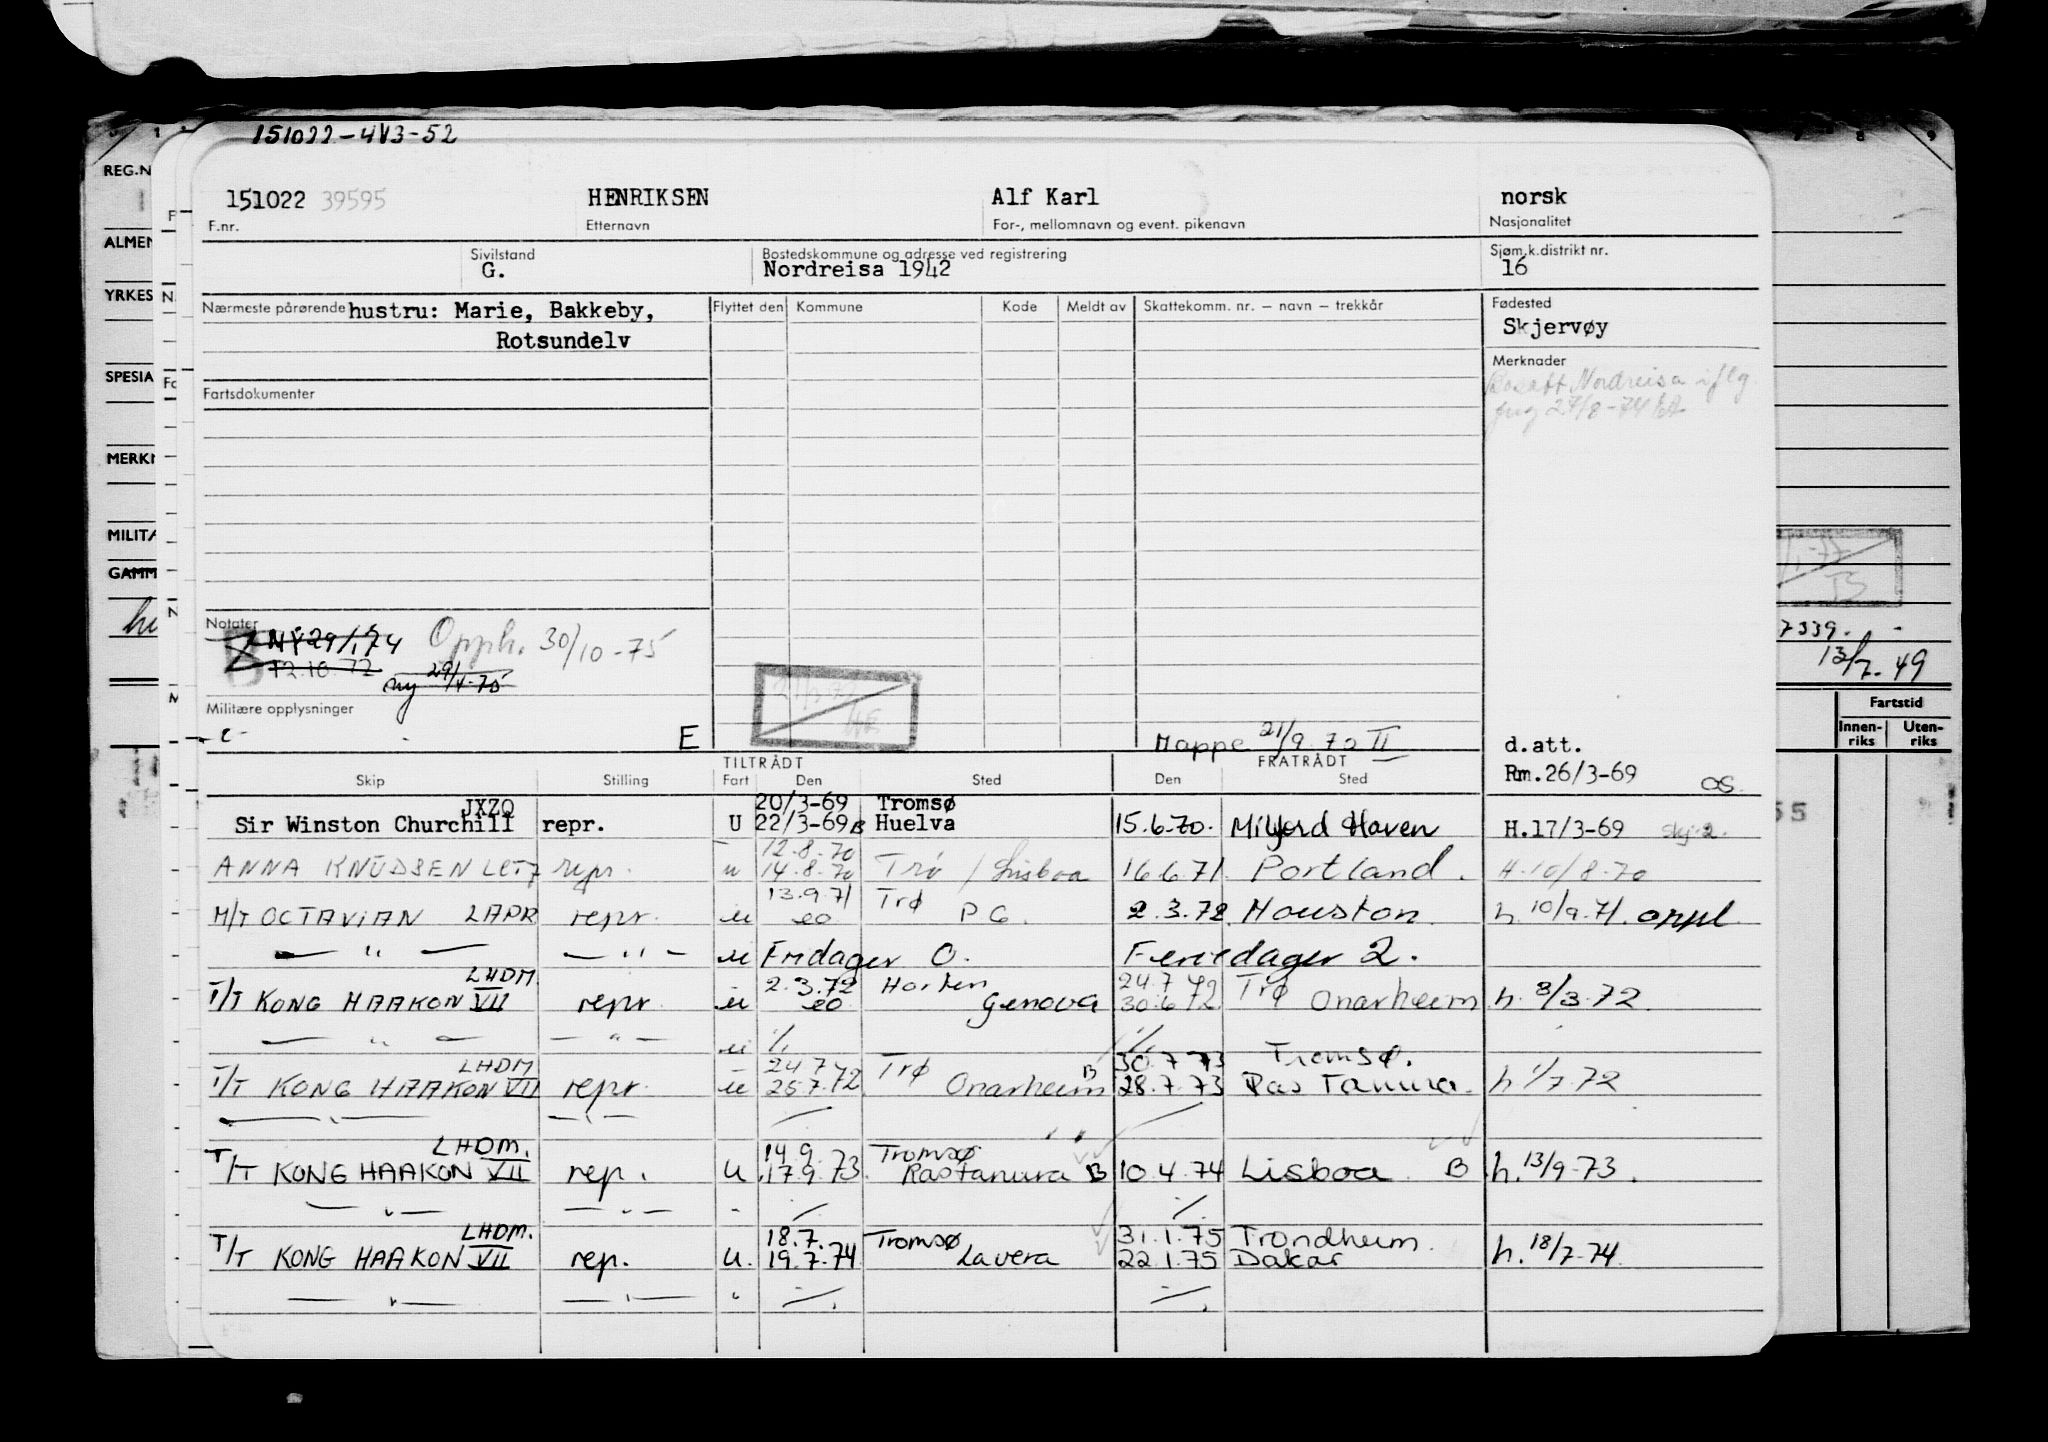 151022-4113-52
REG.N
151022 39595 HENRIKSEN Alf Karl norsk
F.nr. Etternavn For-, mellomnavn og event. pikenavn Nasjonalitet
ALMEN
Sivilstand Bostedskommune og adresse ved registrering Sjøm.k.distrikt nr.
G. Nordreisa 1942 16
YRKES
Nærmeste pårørende hustru: Marie, Bakkeby, Flyttet den Kommune Kode Meldt av Skattekomm. nr. – navn – trekkår Fødested
Rotsundelv Skjervøy
Merknader
SPESIA
Bosatt Nordreisa iflg.
27/8-74
Fartsdokumenter
MERKN
MILITÆ
GAMM
Notater
NY 29/1.74 Opph. 30/10-75
12.10.72 ny 29/4-75
7339.
13/7.49
Militære opplysninger
E
Mappe 21/9.72 II d.att.
Fartstid
Innen-riks Uten-riks
TILTRÅDT FRATRÅDT
Rm.26/3-69 OS.
Skip Stilling Fart Den Sted Den Sted
JXZQ 20/3-69 Tromsø
Sir Winston Churchill repr. U 22/3-69 B Huelva 15.6.70. Milford Haven H.17/3-69
12.8.70
ANNA KNUDSEN repr. u 14.8.70 Trø / Lisboa 16.6.71. Portland. H.10/8-70
13.9.71 Trø
M/T OCTAVIAN LAPR repr. u eo P G. 2.3.72 Houston. h. 10/9.71. oppl
— " — — " — u Fridager 0. Feriedager 2.
LHDM. 2.3.72 Horten 24.7.72 Trø
T/T KONG HAAKON VII repr. u eo Genova 30.6.72 Onarheim h. 8/3.72.
— " — — " — u ·/. ·/.
LHDM 24.7 Trø 30.7.73 Tromsø.
T/T KONG HAAKON VII repr. u 25.7.72. Onarheim B 28.7.73 Ras Tanura. h. 1/7.72
LHDM. 14.9. Tromsø
T/T KONG HAAKON VII rep. U 17.9.73. Rastanura B 10.4.74 Lisboa. B h. 13/9-73.
— " — — " —
LHDM. 18.7. Tromsø 31.1.75 Trondheim.
T/T KONG HAAKON VII rep. U. 19.7.74 Lavera 22.1.75 Dakar h. 18/7-74.
— " — — " —